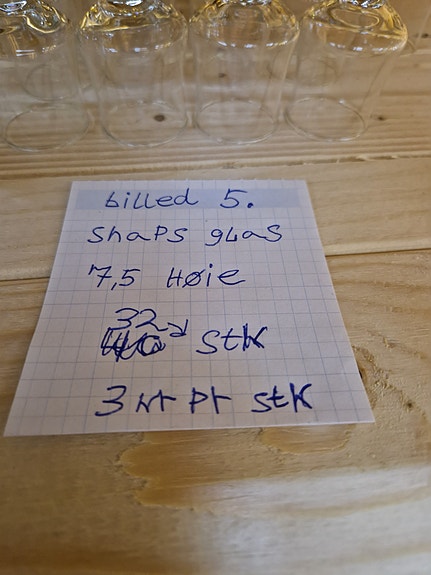 billed 5.
Shaps glas
7,5 Høie
32 stk
3 kr pr stk